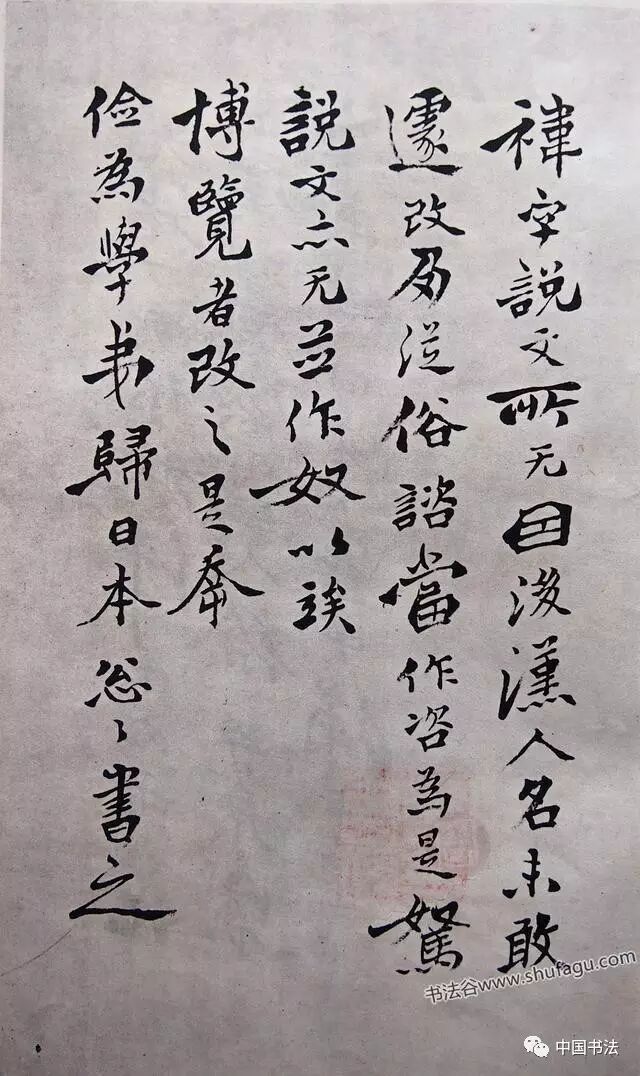 褘字說文所无因後漢人名未敢
遽改及從俗諮當作咨為是駑
說文亦无並作奴以俟
博覽者改之是奉
儉為學弟歸日本怱〻書之
书法谷www.shufagu.com
中国书法